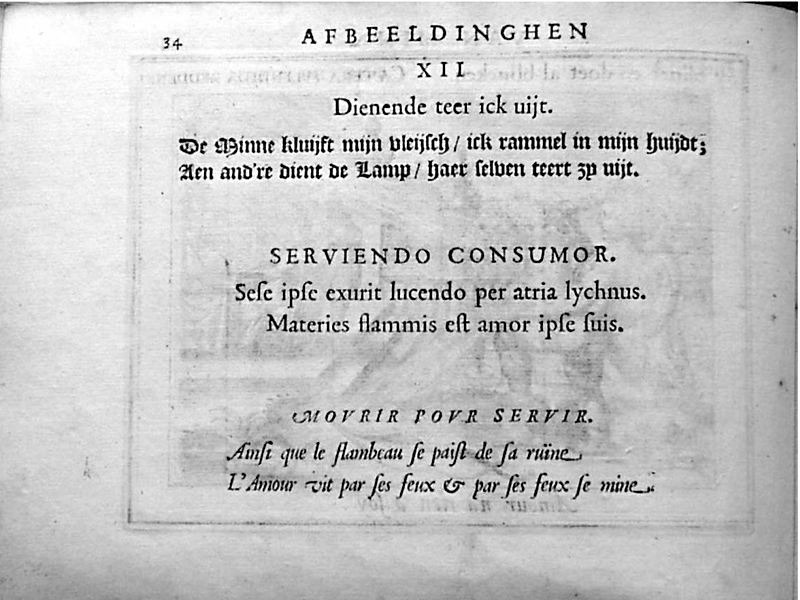 34
AFBEELDINGHEN
XII
Dienende teer ick uijt.
De Minne kluijft mijn vleijſch / ick rammel in mijn huijdt;
Aen and're dient de Lamp / haer ſelven teert zy uijt.
SERVIENDO CONSUMOR.
Seſe ipſe exurit lucendo per atria lychnus.
Materies flammis eſt amor ipſe ſuis.
MOVRIR POVR SERVIR.
Ainſi que le flambeau ſe paiſt de ſa ruïne,
L'Amour vit par ſes feux & par ſes feux ſe mine.